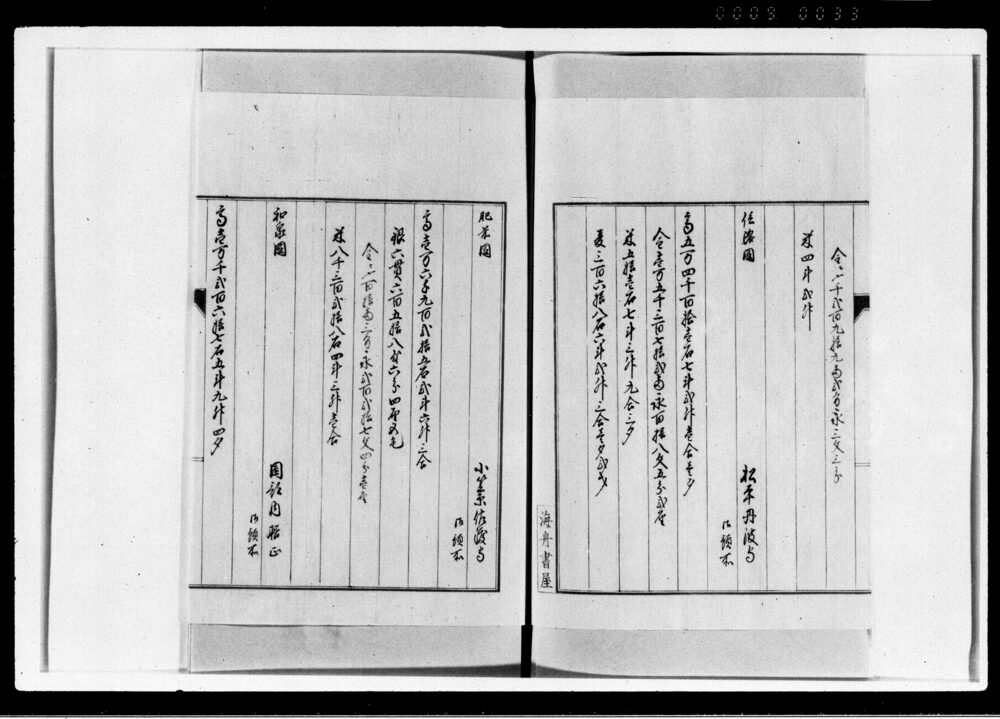 0009 0033
金二千弐百九拾九両弐分永三文三分
米四斗弐升
信濃国
松平丹波守
御預所
高五万四千百拾壱石七斗弐升壱合壱夕
金壱万五千三百七拾弐両永百拾八文五分弐厘
米五拾壱石七斗三升九合三夕
三百六拾八石六斗弐升三合壱夕弐才
海舟書屋
肥前国
小笠原佐渡守
御預所
高壱万六千九百弐拾五石弐斗六升三合
銀六貫六百五拾八匁六分四厘五毛
金三百拾両三分永弐百弐拾七文四分壱厘
米八千三百弐拾八石四斗三升壱合
和泉国
岡部内膳正
御預所
高壱万千弐百六拾七石五斗九升四夕